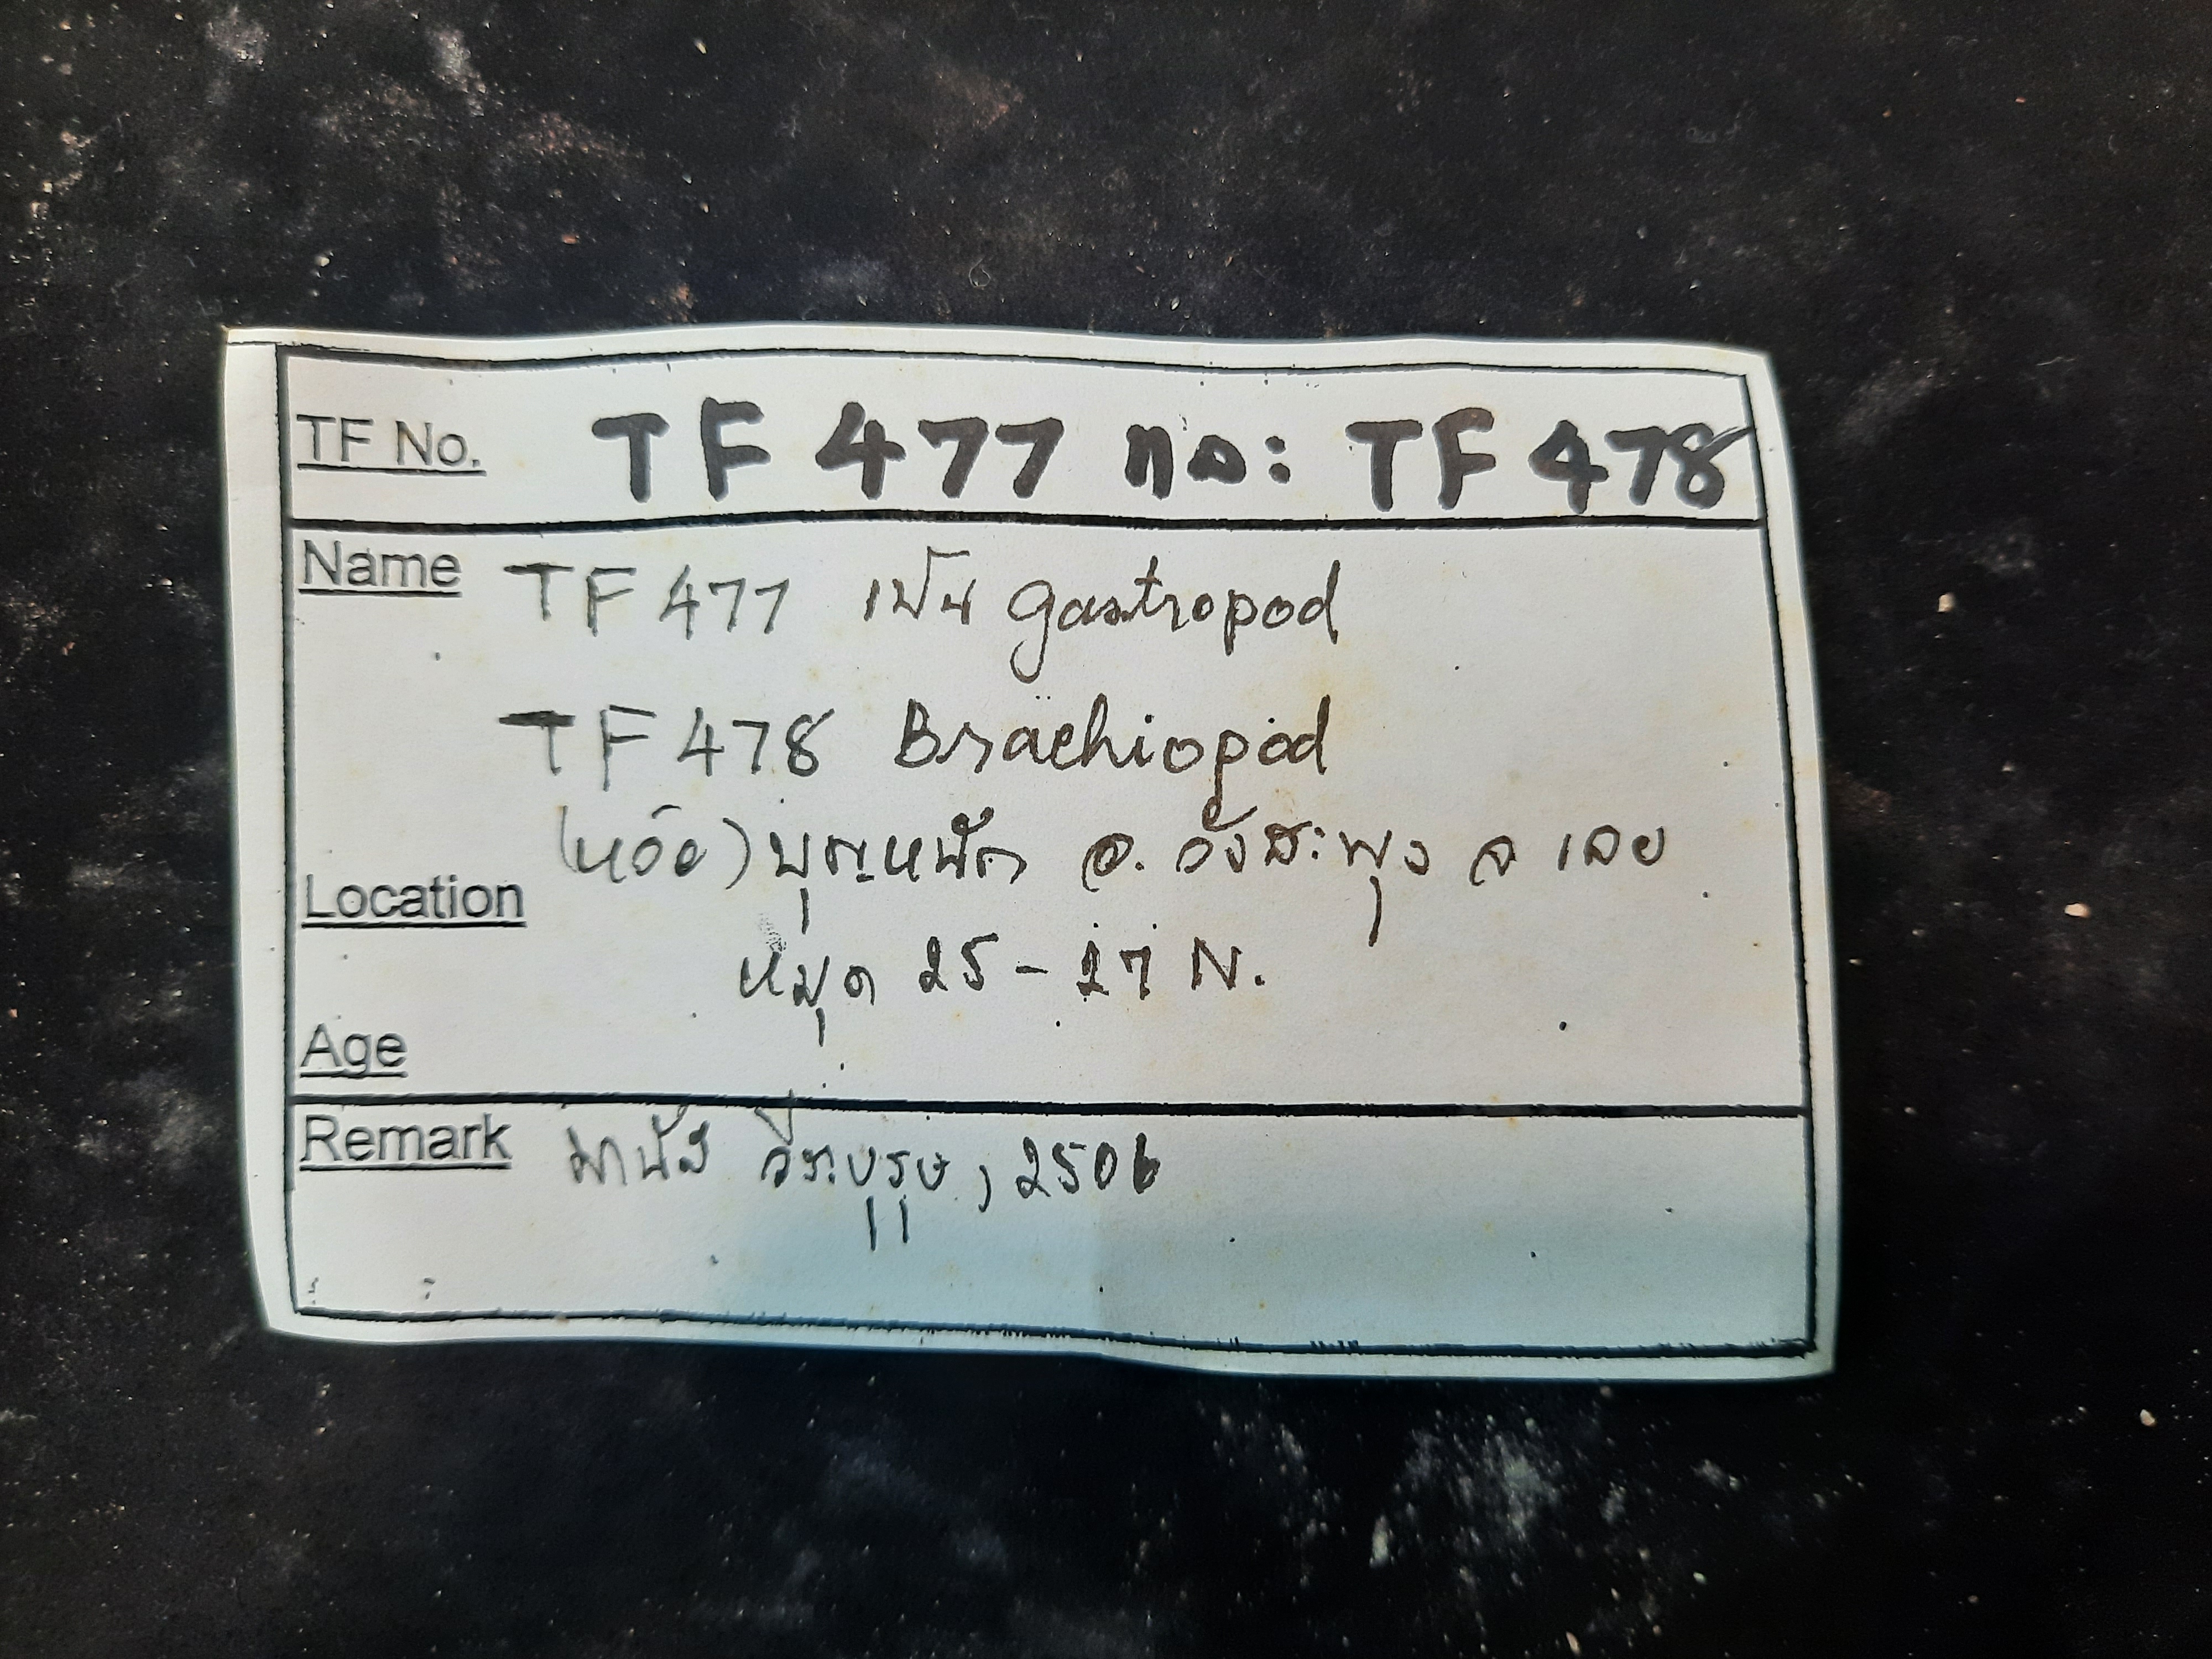 TF No. TF 477 และ TF 478
Name TF 477 เป็น gastropod
TF 478 Brachiopod
Location (ห้วย) อ. วังสะพุง จ เลย
หมุด 25 - 27 N.
Age
Remark มานัส วีระบุรุษ, 2506